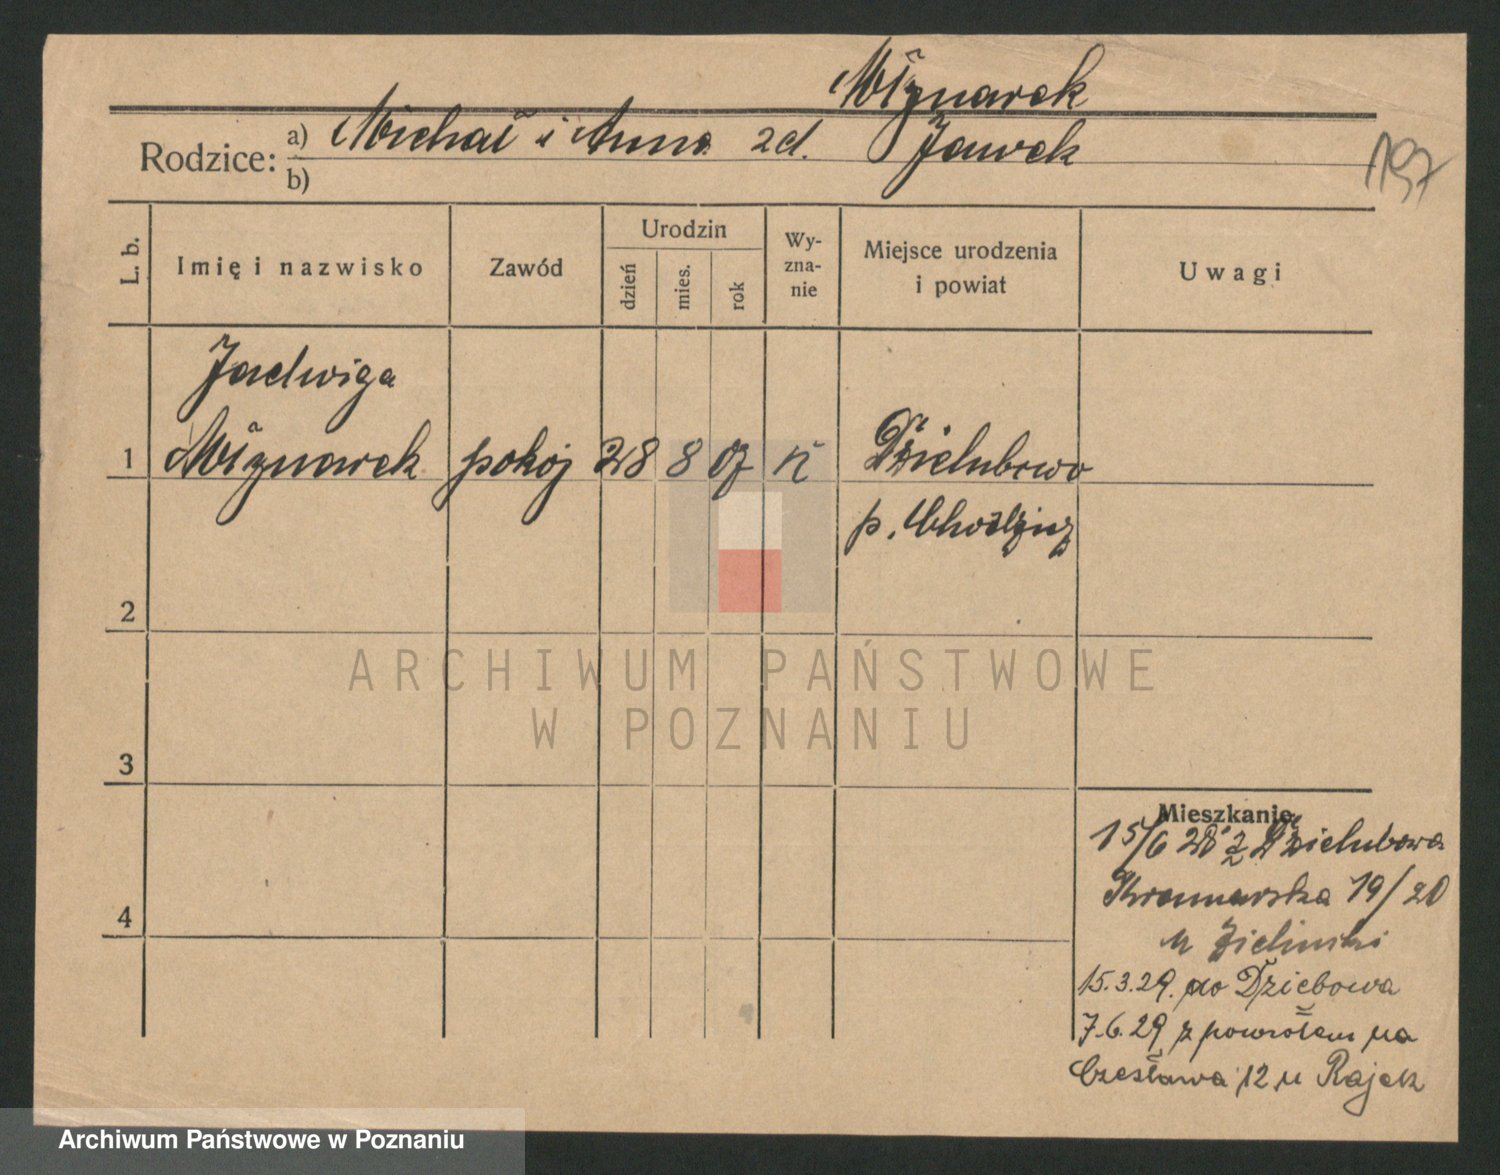 Młynarek
Rodzice: a) Michał i Anna zd. Jawek
b)
197
L. b.
Imię i nazwisko
Zawód
Urodzin
dzień
mies.
rok
Wy-
zna-
nie
Miejsce urodzenia
i powiat
Uwagi
Jadwiga
1 Młynarek pokoj 28 8 07 rk Dziełubowo
p. Chodzież
2
ARCHIWUM PAŃSTWOWE
W POZNANIU
3
Mieszkanie
15/6 28 z
19/20
u Zieliński
4
15.3.29. do Dziebowa
7.6.29 z powrotem na
Czesława 12 u Rajek
Archiwum Państwowe w Poznaniu